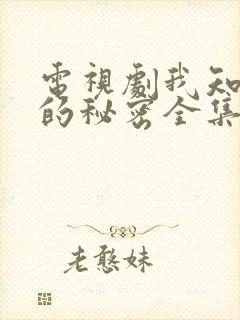 電視劇我知
的秘密全集
老憨妹